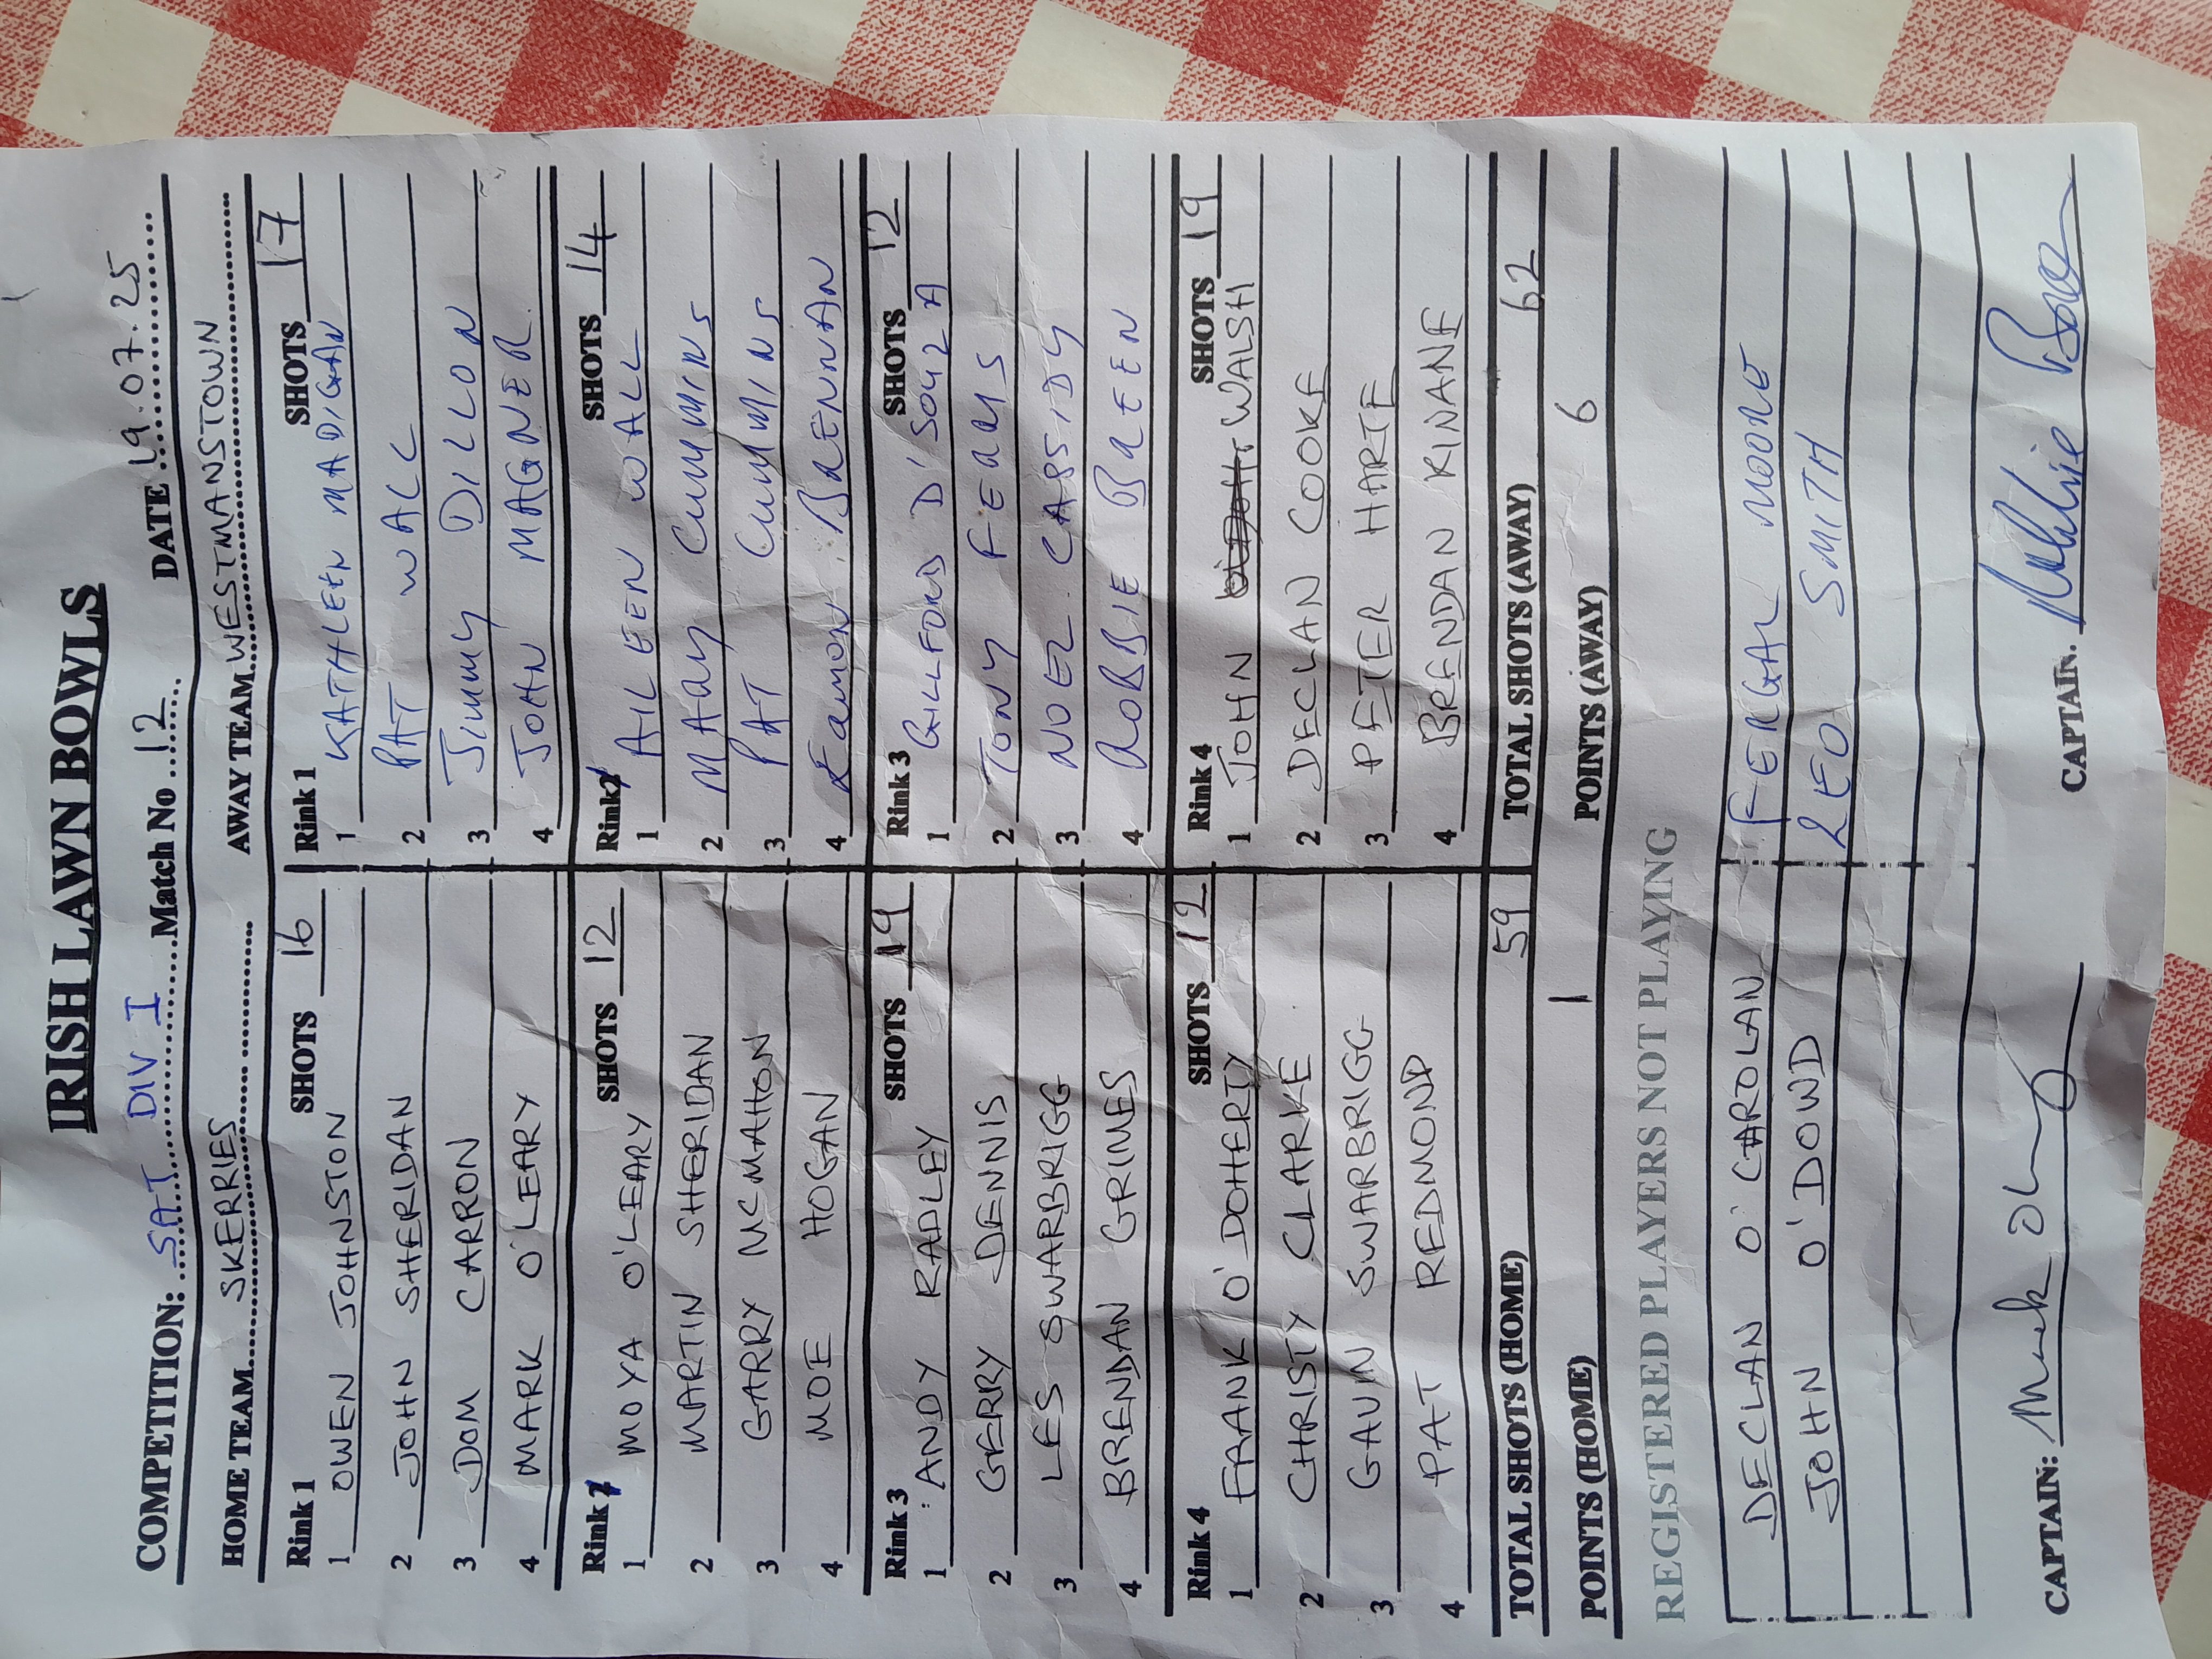 IRISH LAWN BOWLS
COMPETITION: SAT DIV I Match No 12 DATE 19.07.25
HOME TEAM SKERRIES AWAY TEAM WESTMANSTOWN
Rink 1 SHOTS 16
1 OWEN JOHNSTON
2 JOHN SHERIDAN
3 DOM CARRON
4 MARK O'LEARY
Rink 1 SHOTS 17
1 KATHLEEN MADIGAN
2 PAT WALL
3 Jimmy DILLON
4 JOHN MAGNER
Rink 2 SHOTS 12
1 MOYA O'LEARY
2 MARTIN SHERIDAN
3 GARRY MCMAHON
4 MOE HOGAN
Rink 2 SHOTS 14
1 AILEEN WALL
2 MARY CUMMINS
3 PAT CUMMINS
4 Eamon BRENNAN
Rink 3 SHOTS 19
1 ANDY RADLEY
2 GERRY DENNIS
3 LES SWARBRIGG
4 BRENDAN GRIMES
Rink 3 SHOTS 12
1 GILLFORD D'SOUZA
2 TONY FEARS
3 NOEL CASSIDY
4 ROBBIE BREEN
Rink 4 SHOTS 12
1 FRANK O'DOHERTY
2 CHRISTY CLARKE
3 GAVIN SWARBRIGG
4 PAT REDMOND
Rink 4 SHOTS 19
1 JOHN WALSH
2 DECLAN COOKE
3 PETER HARTE
4 BRENDAN KINANE
TOTAL SHOTS (HOME) 59 TOTAL SHOTS (AWAY) 62
POINTS (HOME) 1 POINTS (AWAY) 6
REGISTERED PLAYERS NOT PLAYING
DECLAN O'CAROLAN FERGAL MOORE
JOHN O'DOWD LEO SMITH
CAPTAIN: Mark CAPTAIN.